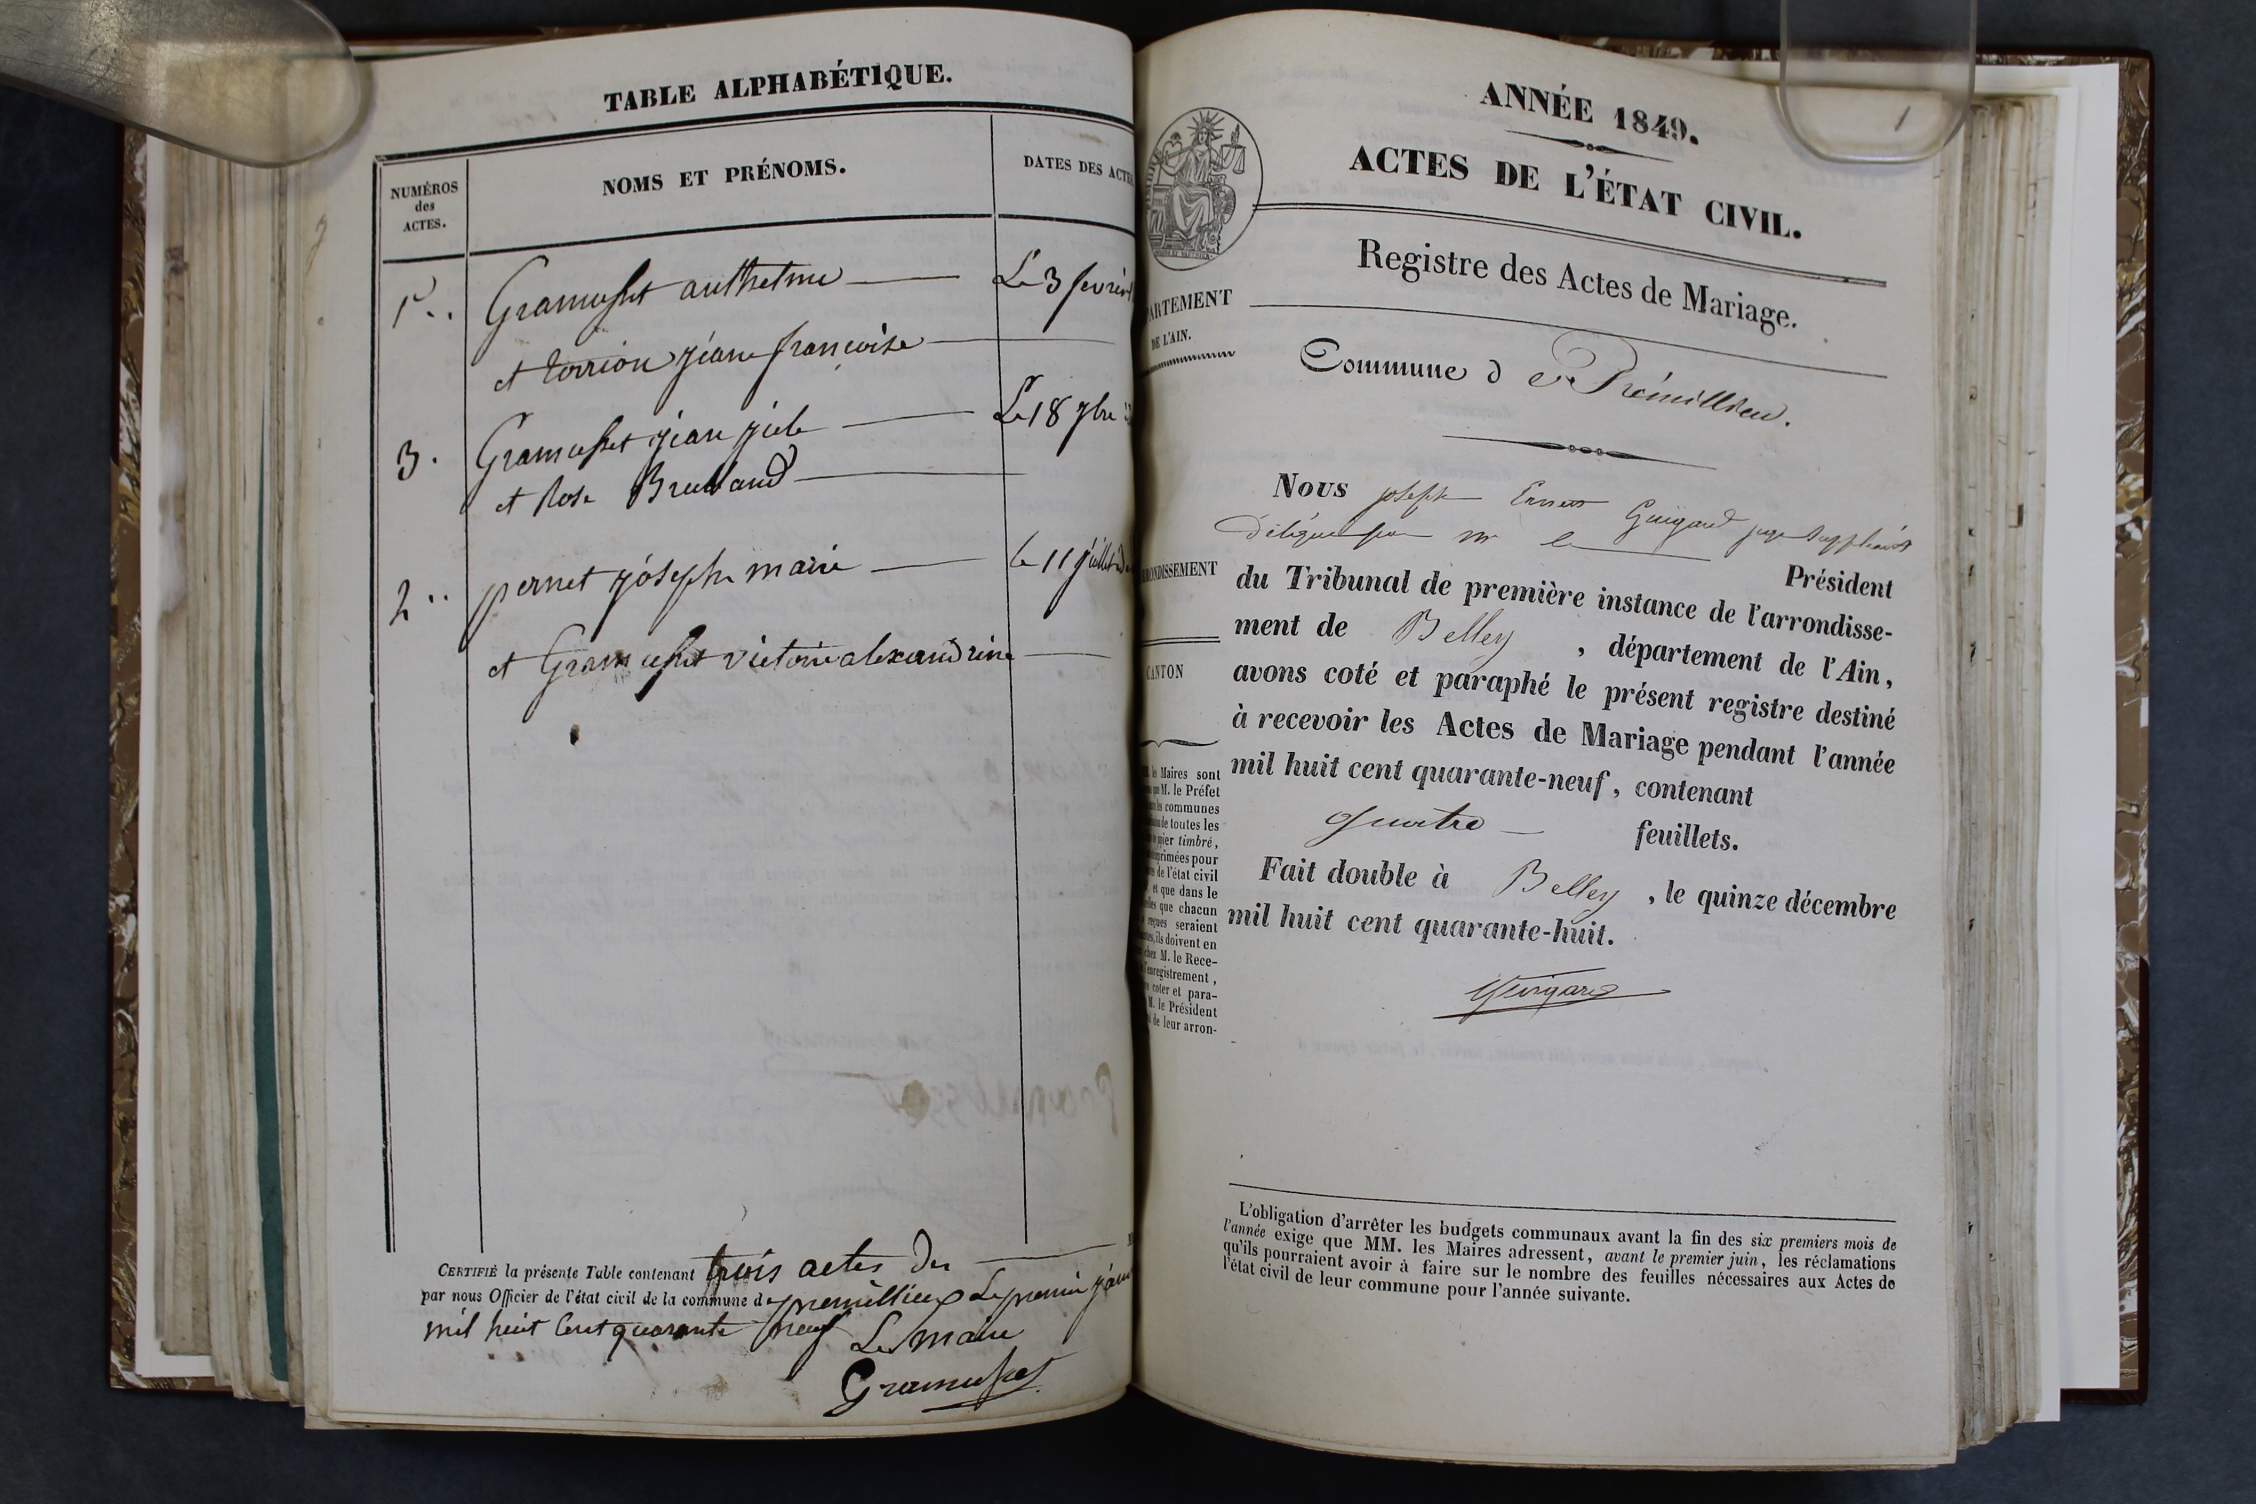 TABLE ALPHABÉTIQUE.
NUMÉROS
des
ACTES.
NOMS ET PRÉNOMS.
DATES DES ACTE
1r..
Gramusset anthelme
Le 3 fevrier
et torrion jéane françoise
3.
Gramusset jean
Le 18 7bre
et Rose
2..
pernet joseph marie
le 11 juillet
et Gramusset victoire alexandrine
CERTIFIÉ la présente Table contenant trois actes du
par nous Officier de l'état civil de la commune de premillieu Le premier janv
mil huit Cent quarante neuf Le maire
Gramusset
1
ANNÉE 1849.
ACTES DE L'ÉTAT CIVIL.
Registre des Actes de Mariage.
ARTEMENT
DE L'AIN.
Commune d e Prémillieu.
Nous joseph Ernest Guigard juge Suppléant
Délégué par mr le
Président
ONDISSEMENT
du Tribunal de première instance de l'arrondisse-
ment de Belley , département de l'Ain,
CANTON
avons coté et paraphé le présent registre destiné
à recevoir les Actes de Mariage pendant l'année
mil huit cent quarante-neuf, contenant
quatre feuillets.
Fait double à Belley , le quinze décembre
mil huit cent quarante-huit.
Guigard
les Maires sont
M. le Préfet
communes
de toutes les
timbré,
primées pour
de l'état civil
et que dans le
que chacun
reçues seraient
ils doivent en
chez M. le Rece-
enregistrement,
coter et para-
M. le Président
de leur arron-
L'obligation d'arrêter les budgets communaux avant la fin des six premiers mois de
l'année exige que MM. les Maires adressent, avant le premier juin, les réclamations
qu'ils pourraient avoir à faire sur le nombre des feuilles nécessaires aux Actes de
l'état civil de leur commune pour l'année suivante.